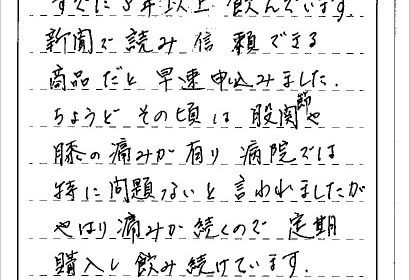 すでに5年以上飲んでいます。
新聞で読み信頼できる
商品だと早速申込みました.
ちょうどその頃は股関節や
膝の痛みが有り病院では
特に問題ないと言われましたが
やはり痛みが続くので定期
購入し飲み続けています.